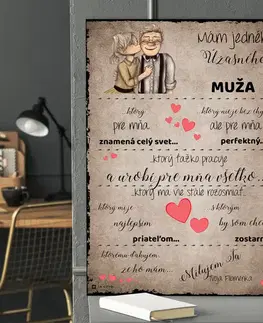 Mám jedného
Úžasného
MUŽA
ktorý
pre mňa
znamená celý svet...
ktorý nie je bez chy
ale pre mňa
perfektný.
...ktorý ťažko pracuje
a urobí pre mňa všetko...
...ktorý ma vie stále rozosmiať...
ktorý mi je
najlepším
priateľom...
s ktorým
by som chce
zostarn
ktorému ďakujem
že ho mám...
Milujem Ťa
Tvoja Plamienka